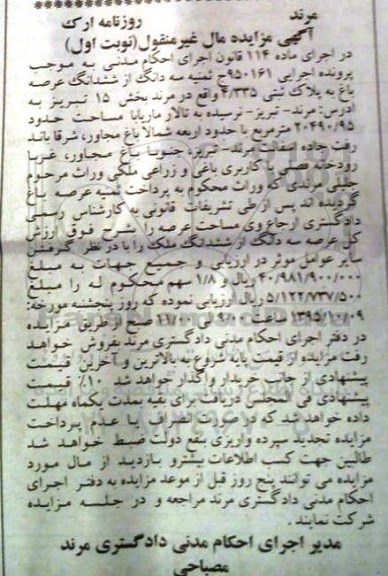 مرند روزنامه ارک
آگهی مزایده مال غیرمنقول(نوبت اول)
در اجرای ماده ۱۱۴ قانون اجرای احکام مدنی به موجب
پرونده اجرایی ۹۵۰۱۶۱ج ثمنیه سه دانگ از ششدانگ عرصه
باغ به پلاک ثبتی ۴/۳۳۵ واقع در مرند بخش ۱۵ تبریز به
ادرس: مرند- تبریز- نرسیده به تالار ماربابا مساحت حدود
۲۰۴۹۰/۹۵ مترمربع با حدود اربعه شمالا باغ مجاور، شرقا باند
رفت جاده اسفالت مرند- تبریز، جنوبا باغ مجاور، غربا
رودخانه فصلی با کاربری باغی و زراعی ملکی وراث مرحوم
جلیلی مرندی که وراث محکوم به پرداخت ثمنیه عرصه باغ
گردیده اند پس از طی تشریفات قانونی به کارشناس رسمی
دادگستری ارجاع وی مساحت عرصه را بشرح فوق ارزش
کل عرصه سه دانگ از ششدانگ ملک را با در نظر گرفتن
سایر عوامل موثر در ارزیابی و جمیع جهات به مبلغ
۴۰/۹۸۱/۹۰۰/۰۰۰ ریال و ۱/۸ سهم محکوم له را مبلغ
۵/۱۲۲/۷۳۷/۵۰۰ ریال ارزیابی نموده که روز پنجشنبه مورخه:
۱۳۹۵/۱۰/۰۹ ساعت ۹:۰۰ الی ۱۱:۰۰ صبح از طریق مزایده
در دفتر اجرای احکام مدنی دادگستری مرند بفروش خواهد
رفت مزایده از قیمت پایه شروع به بالاترین و آخرین قیمت
پیشنهادی از جانب خریدار واگذار خواهد شد ۱۰٪ قیمت
پیشنهادی فی المجلس دریافت برای بقیه بمدت یکماه مهلت
داده خواهد شد که در صورت انصراف یا عدم پرداخت
مزایده تجدید سپرده واریزی بنفع دولت ضبط خواهد شد
طالبین جهت کسب اطلاعات بیشترو بازدید از مال مورد
مزایده می توانند پنج روز قبل از موعد مزایده به دفتر اجرای
احکام مدنی دادگستری مرند مراجعه و در جلسه مزایده
شرکت نمایند.
مدیر اجرای احکام مدنی دادگستری مرند
مصباحی